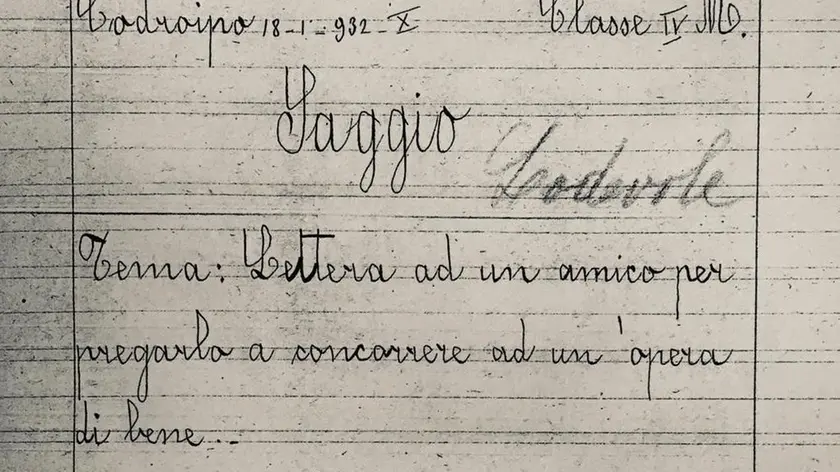 Codroipo 18-1-932-X Classe IV M.
Saggio
Lodevole
Tema: Lettera ad un amico per
pregarlo a concorrere ad un'opera
di bene...